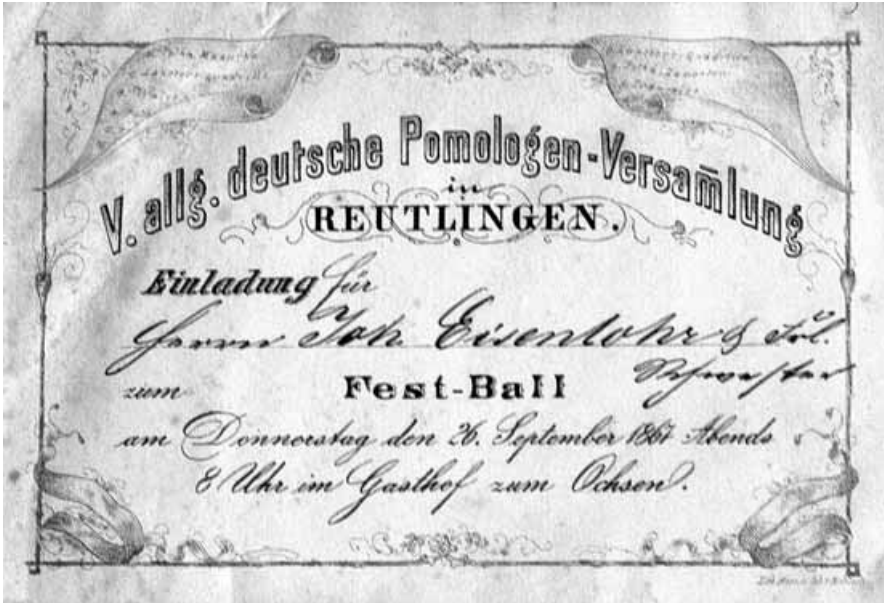 V. allg. deutsche Pomologen-Versam̄lung
in
REUTLINGEN.
Einladung für
Herrn Joh. Eisenlohr & Frl.
Schwester
zum Fest-Ball
am Donnerstag den 26. September 1867 Abends
8 Uhr im Gasthof zum Ochsen.